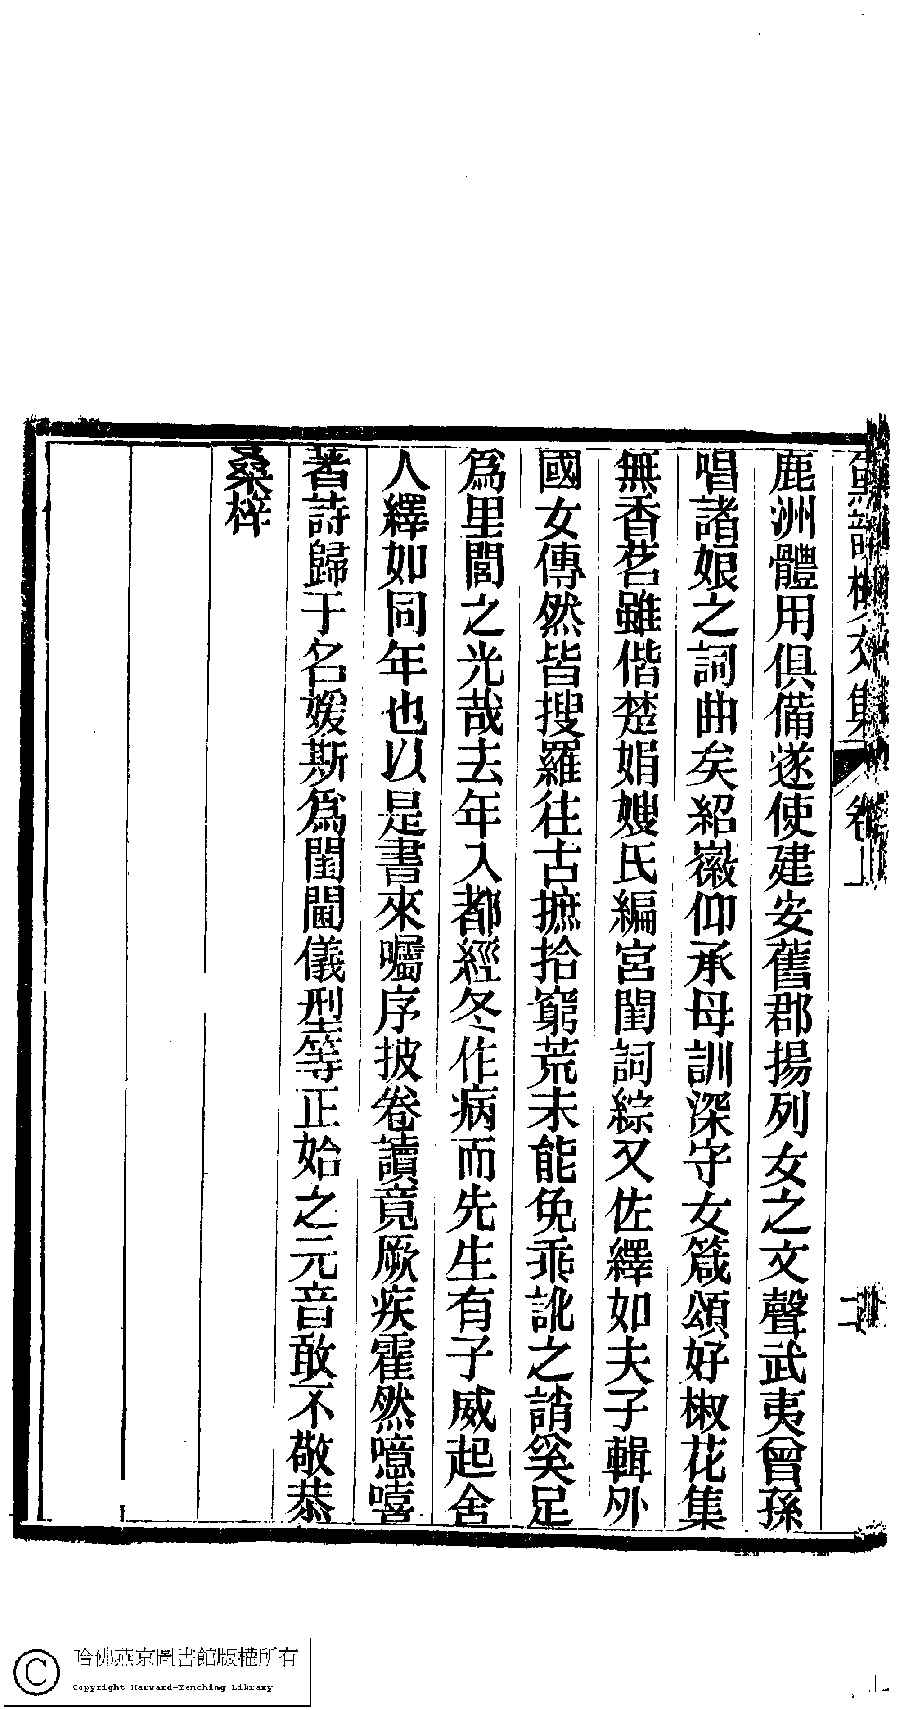 鹿洲體用俱備遂使建安舊郡揚列女之文聲武夷曾孫
唱諸娘之詞曲矣紹徽仰承母訓深守女箴頌好椒花集
無香茗雖偕楚娟嫂氏編宮閨詞綜又佐繹如夫子輯外
國女傳然皆搜羅往古摭拾窮荒未能免乖訛之誚奚足
爲里閭之光哉去年入都經冬作病而先生有子威起舍
人繹如同年也以是書來囑序披卷讀竟厥疾霍然噫嘻
著詩歸于名媛斯爲閨閫儀型等正始之元音敢不敬恭
桑梓
文集
卷上
二
哈佛燕京圖書館版權所有
Copyright Harvard-Yenching Library